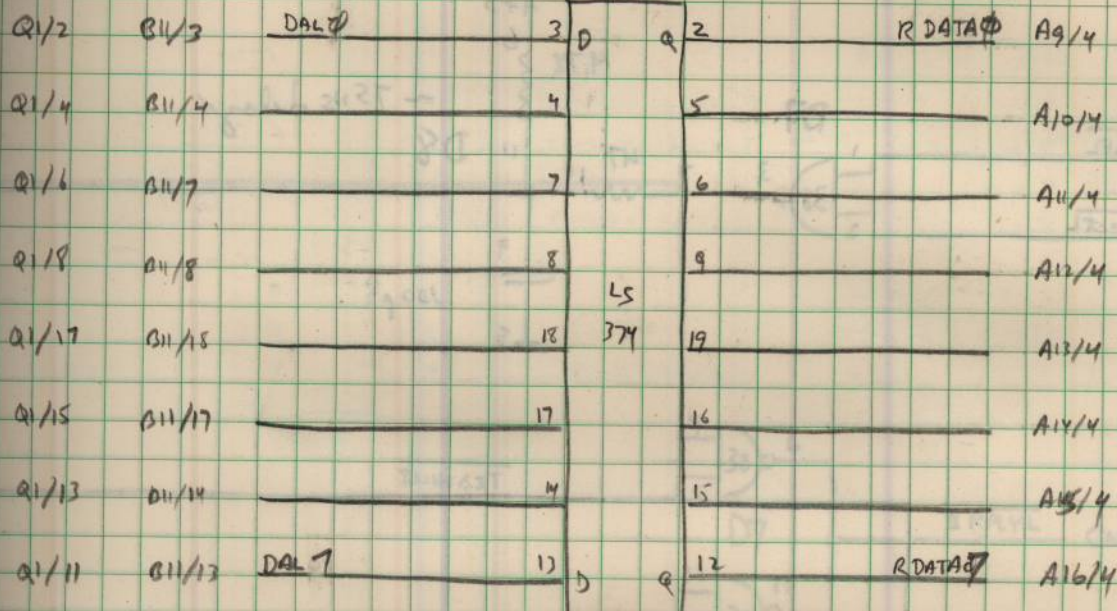 Q1/2 B11/3 DAL0 3 D Q 2 R DATA0 A9/4
Q1/4 B11/4 4 5 A10/4
Q1/6 B11/7 7 6 A11/4
Q1/8 B11/8 8 9 A12/4
LS
Q1/17 B11/18 18 374 19 A13/4
Q1/15 B11/17 17 16 A14/4
Q1/13 B11/14 14 15 A15/4
Q1/11 B11/13 DAL 7 13 D Q 12 R DATA7 A16/4